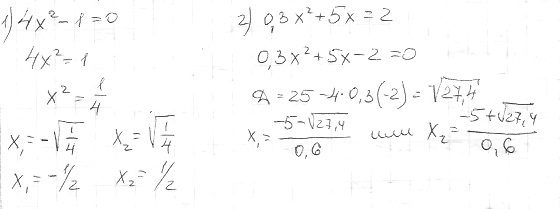 1) 4x² - 1 = 0
4x² = 1
x² = 1/4
x₁ = -√(1/4) x₂ = √(1/4)
x₁ = -1/2 x₂ = 1/2
2) 0,3x² + 5x = 2
0,3x² + 5x - 2 = 0
Д = 25 - 4·0,3(-2) = √27,4
x₁ = (-5 - √27,4)/0,6 или x₂ = (-5 + √27,4)/0,6